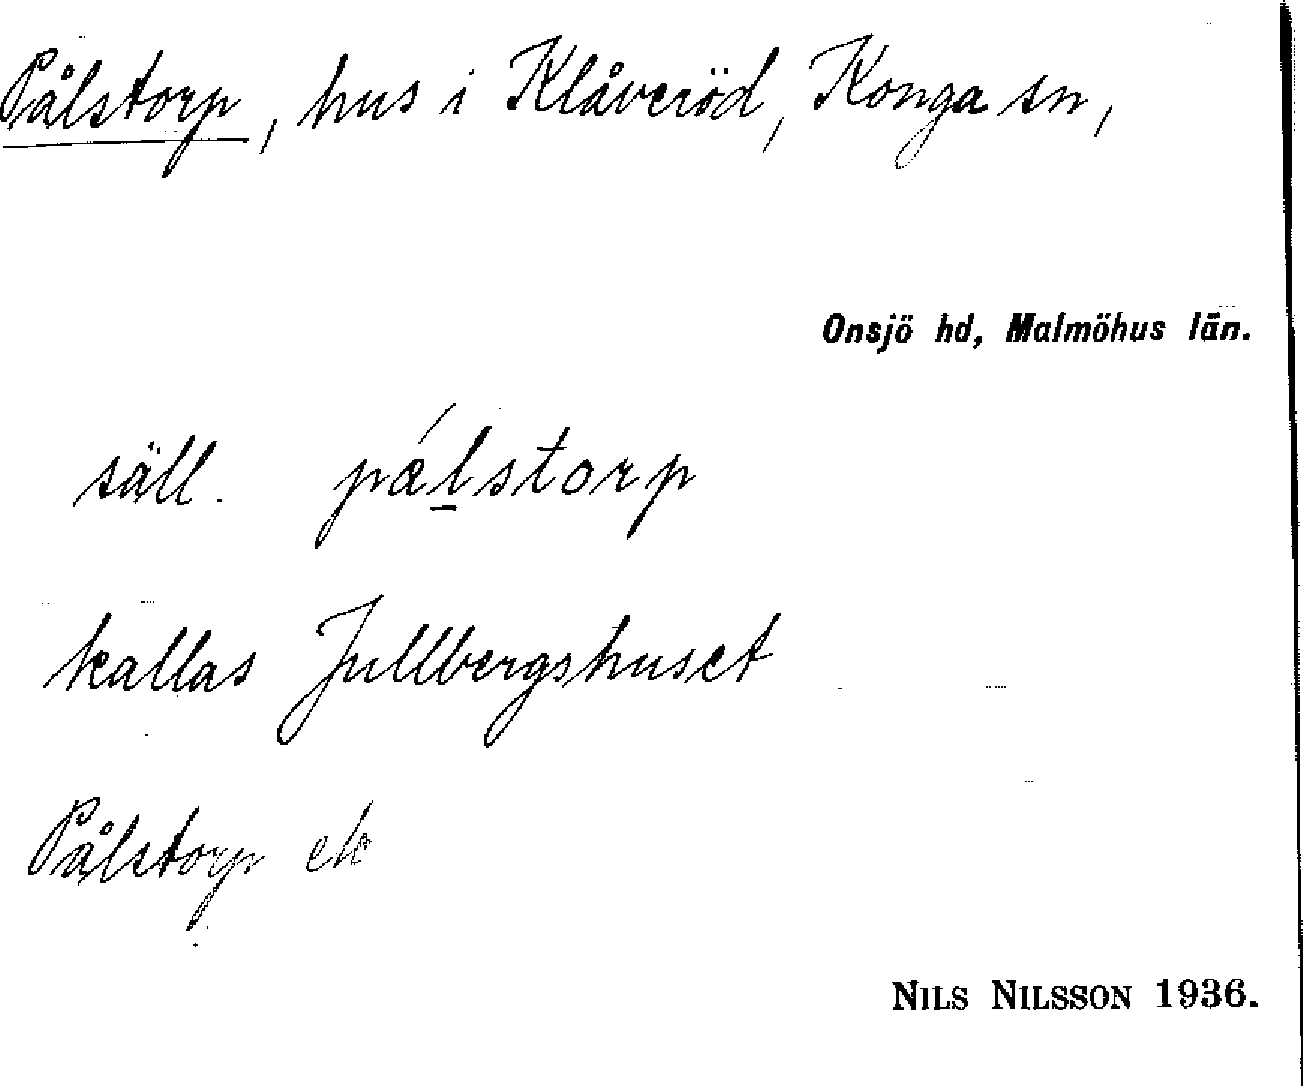 Pålstorp, hus i Klåveröd, Konga sn,
Onsjö hd, Malmöhus län.
säll. pálstorp
kallas Jullbergshuset
Pålstorp ek
NILS NILSSON 1936.